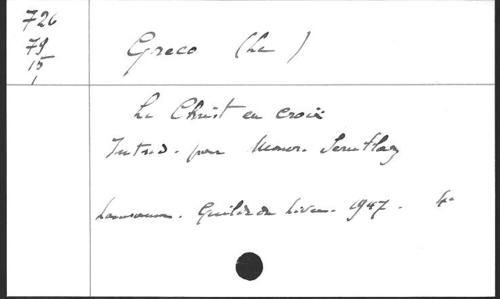 726
79
15
1
Greco (Le)
Le Christ en croix
Introd. par Maur.
Lausanne. Guilde du Livre. 1947. 4°